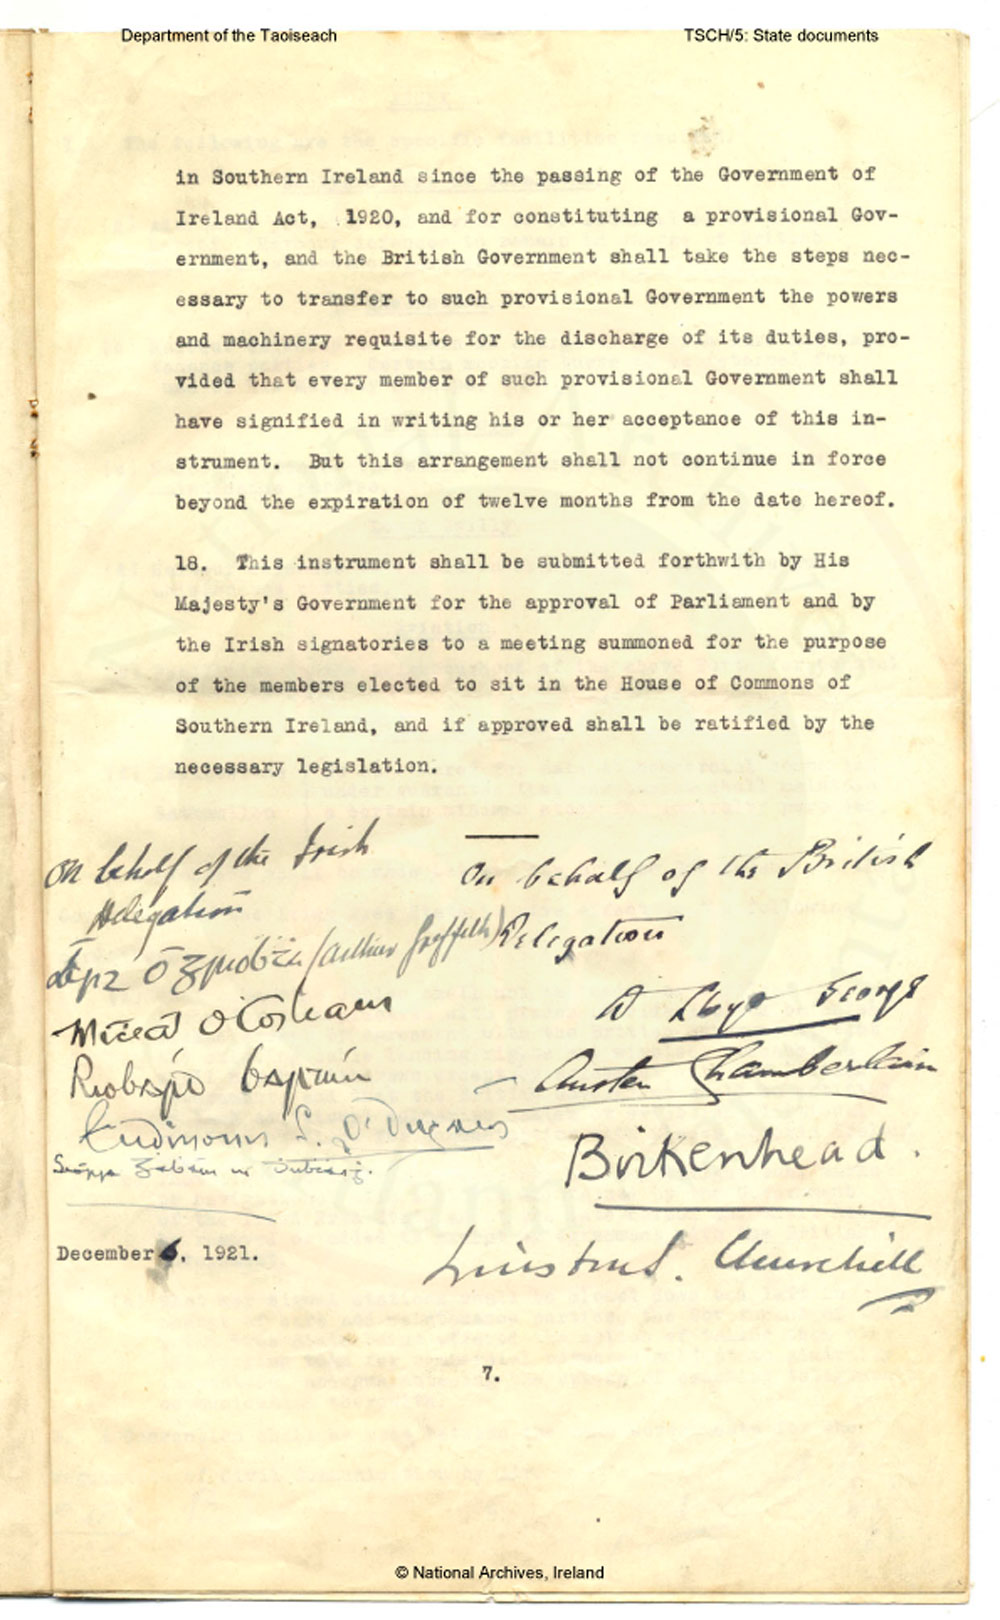 Department of the Taoiseach
TSCH/5: State documents
in Southern Ireland since the passing of the Government of
Ireland Act, 1920, and for constituting a provisional Gov-
ernment, and the British Government shall take the steps nec-
essary to transfer to such provisional Government the powers
and machinery requisite for the discharge of its duties, pro-
vided that every member of such provisional Government shall
have signified in writing his or her acceptance of this in-
strument. But this arrangement shall not continue in force
beyond the expiration of twelve months from the date hereof.
18. This instrument shall be submitted forthwith by His
Majesty's Government for the approval of Parliament and by
the Irish signatories to a meeting summoned for the purpose
of the members elected to sit in the House of Commons of
Southern Ireland, and if approved shall be ratified by the
necessary legislation.
On behalf of the Irish
Delegation
(Arthur Griffith)
Mícheál Ó Coileáin
Riobárd Bartún
December 6, 1921.
On behalf of the British
Delegation
D Lloyd George
Austen Chamberlain
Birkenhead.
Winston S. Churchill
7.
© National Archives, Ireland